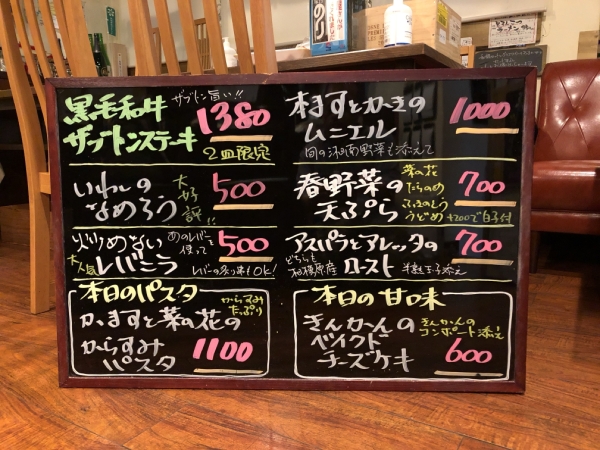 黒毛和牛
ザブトン旨い!!
ザブトンステーキ
1380
2皿限定
いわしの
なめろう
大好評!!
500
炙りめない
レバニラ
大人気
あのレバーを
使って
500
レバーの炙り串もOK!
本日のパスタ
からすみ
たっぷり
かますと菜の花の
からすみ
パスタ
1100
ムニエル
旬の湘南野菜も添えて
1000
春野菜の
天ぷら
菜の花
たらのめ
ふきのとう
うどめ
700
+200で白子付
アスパラとアレッタの
ロースト
どちらも
相模原産
700
半熟玉子添え
本日の甘味
きんかんの
ベイクド
チーズケーキ
きんかんの
コンポート添え
600